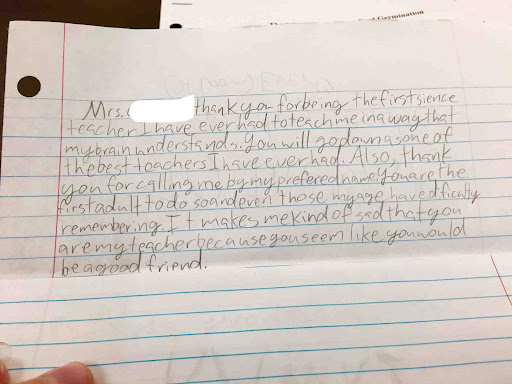 Germination
Mrs. thank you for being the first sience
teacher I have ever had to teach me in a way that
my brain understands. You will go down as one of
the best teachers I have ever had. Also, thank
you for calling me by my prefered name. You are the
first adult to do so and even those my age have dificulty
remembering. It makes me kind of sad that you
are my teacher because you seem like you would
be a good friend.